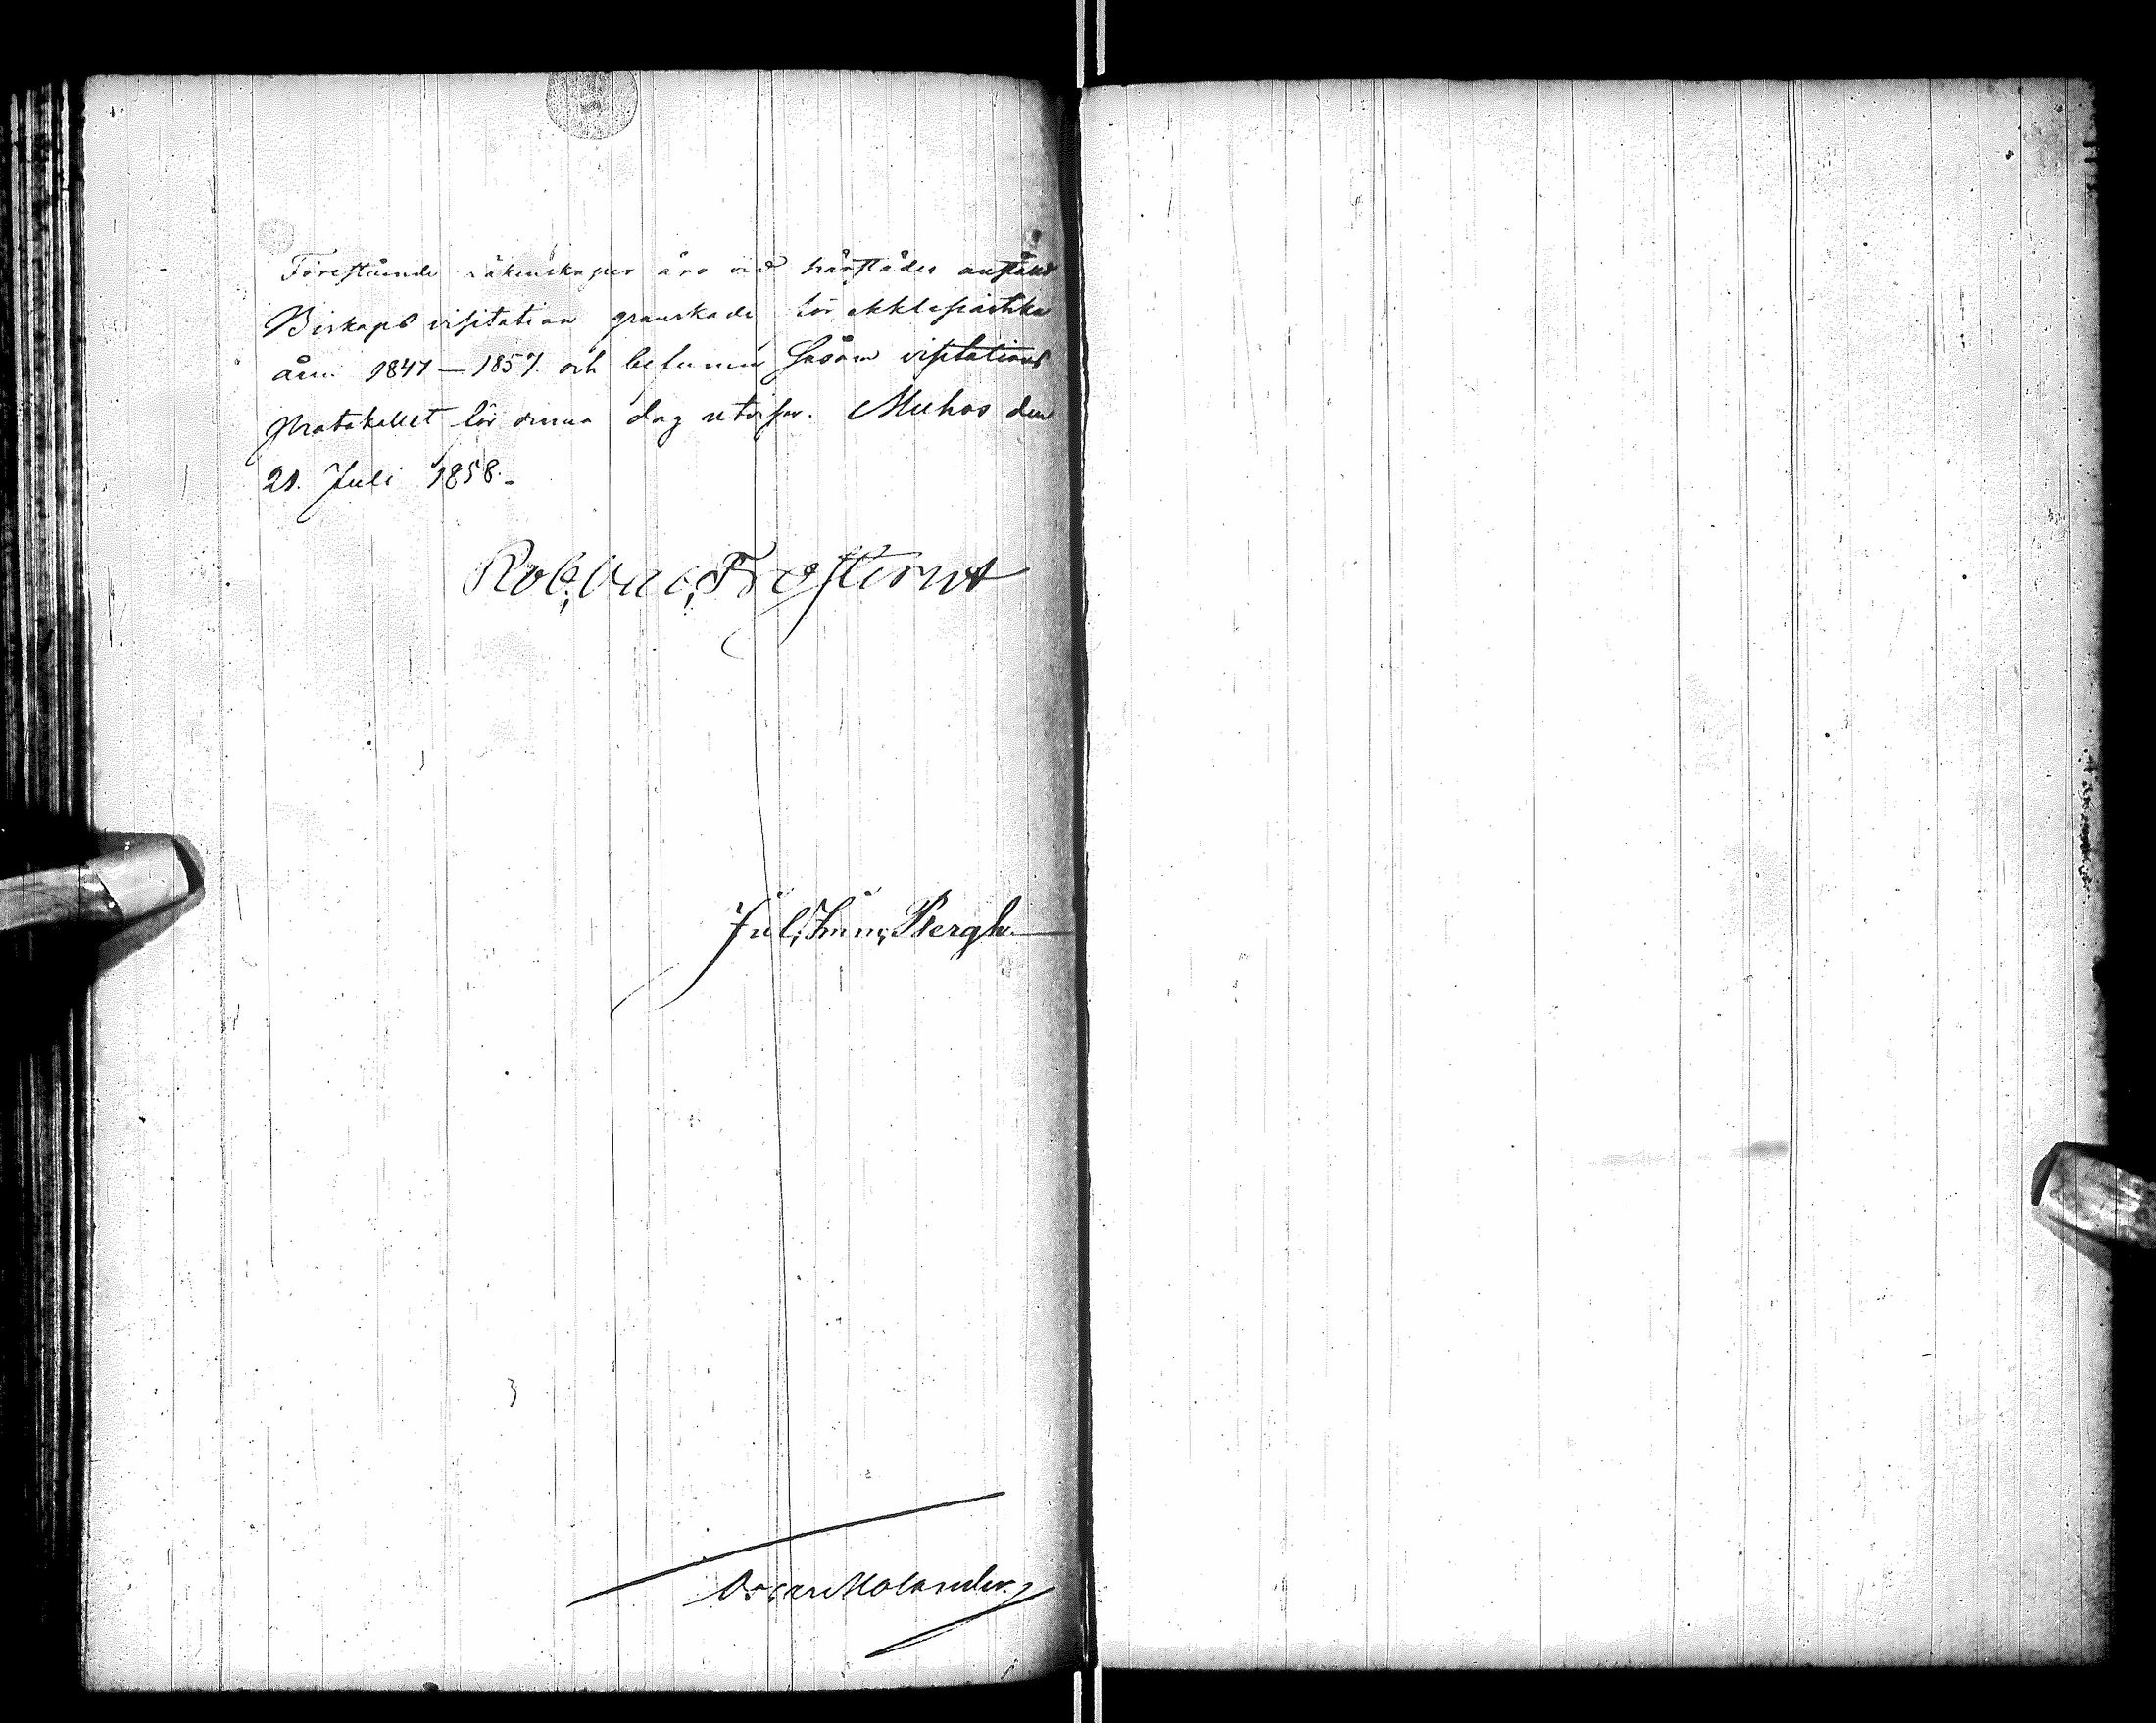 Förestående räkenskaper äro vid härstädes anstäld
Biskops visitation granskade för ekklesiastika
åren 1847 — 1857. och befunne såsom visitations
protokollet för denna dag utvisar. Muhos den
21. Juli 1858.
Rob: Val: Frosterus
Jul: Imm: Bergh.
Oscar Molander.